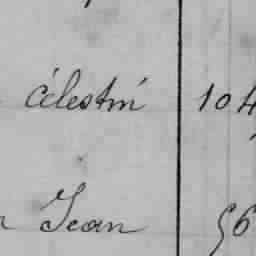 Célestin 104
Jean 56